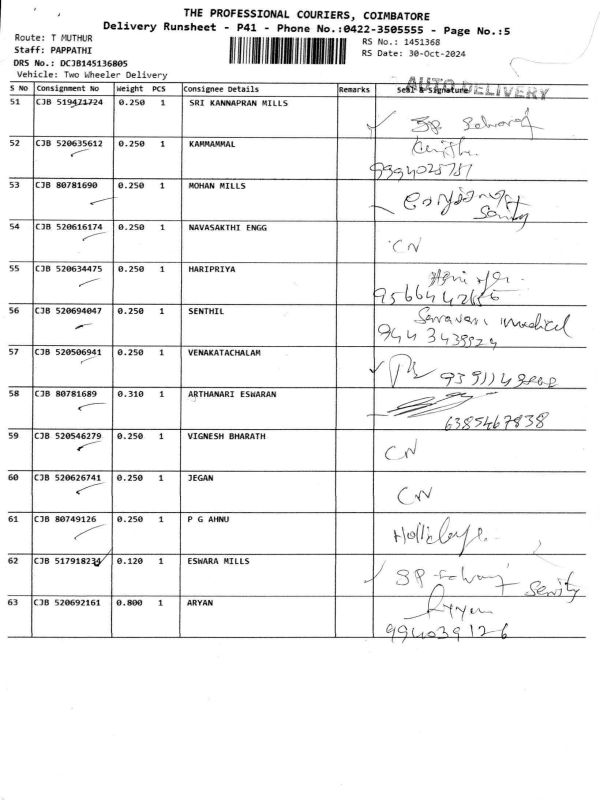 THE PROFESSIONAL COURIERS, COIMBATORE
Delivery Runsheet - P41 - Phone No.:0422-3505555 - Page No.:5
Route: T MUTHUR
RS No.: 1451368
Staff: PAPPATHI
RS Date: 30-Oct-2024
DRS No.: DCJB145136805
Vehicle: Two Wheeler Delivery
AUTO DELIVERY
S No Consignment No Weight PCS Consignee Details Remarks Seal & Signature
51 CJB 519471724 0.250 1 SRI KANNAPRAN MILLS
52 CJB 520635612 0.250 1 KAMMAMMAL
53 CJB 80781690 0.250 1 MOHAN MILLS
54 CJB 520616174 0.250 1 NAVASAKTHI ENGG CN
55 CJB 520634475 0.250 1 HARIPRIYA
56 CJB 520694047 0.250 1 SENTHIL Saravana medical
57 CJB 520506941 0.250 1 VENAKATACHALAM
58 CJB 80781689 0.310 1 ARTHANARI ESWARAN
6385467838
59 CJB 520546279 0.250 1 VIGNESH BHARATH CN
60 CJB 520626741 0.250 1 JEGAN CN
61 CJB 80749126 0.250 1 P G AHNU
62 CJB 517918234 0.120 1 ESWARA MILLS
63 CJB 520692161 0.800 1 ARYAN
994039126